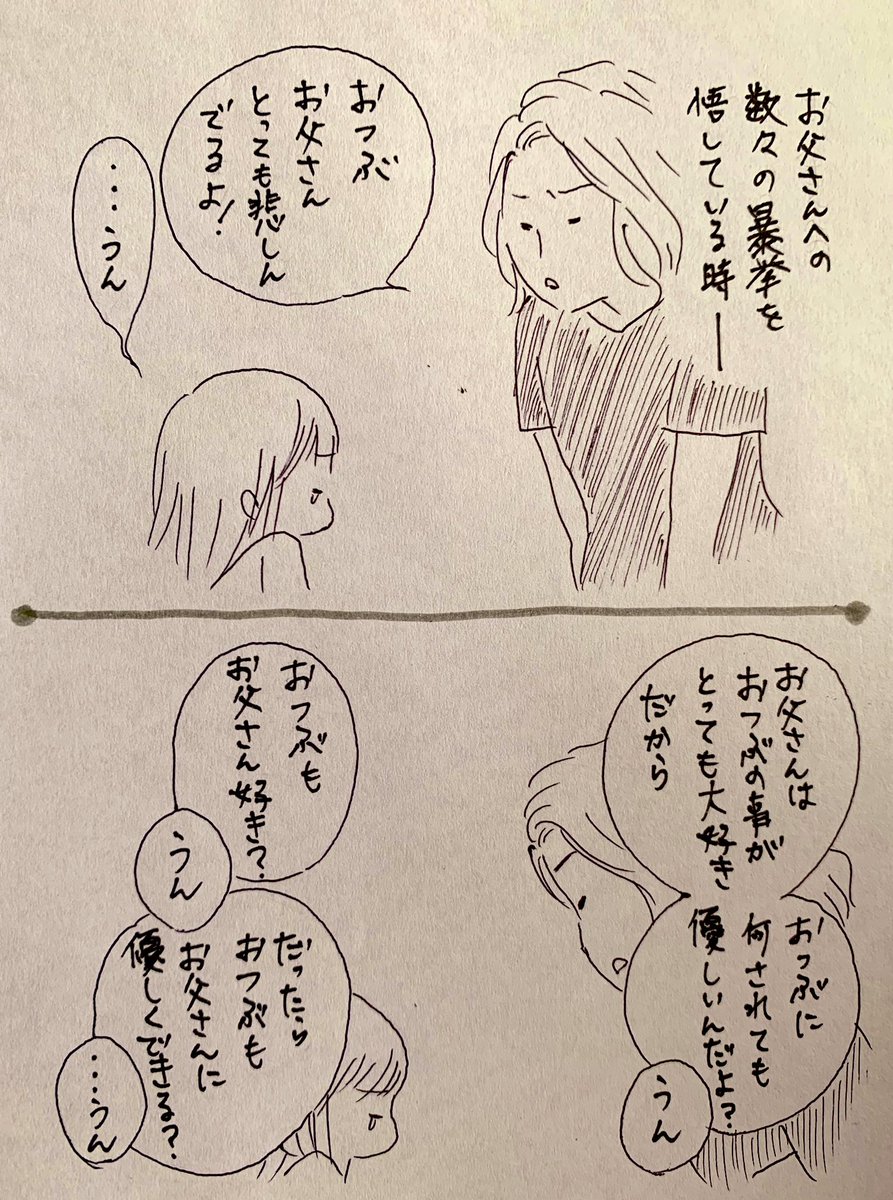 お父さんへの
数々の暴挙を
悟している時ー
おつぶ
お父さん
とっても悲しん
でるよ!
・・・うん
お父さんは
おつぶの事が
とっても大好き
だから
おつぶに
何されても
優しいんだよ?
うん
おつぶも
お父さん好き?
うん
だったら
おつぶも
お父さんに
優しくできる?
・・・うん